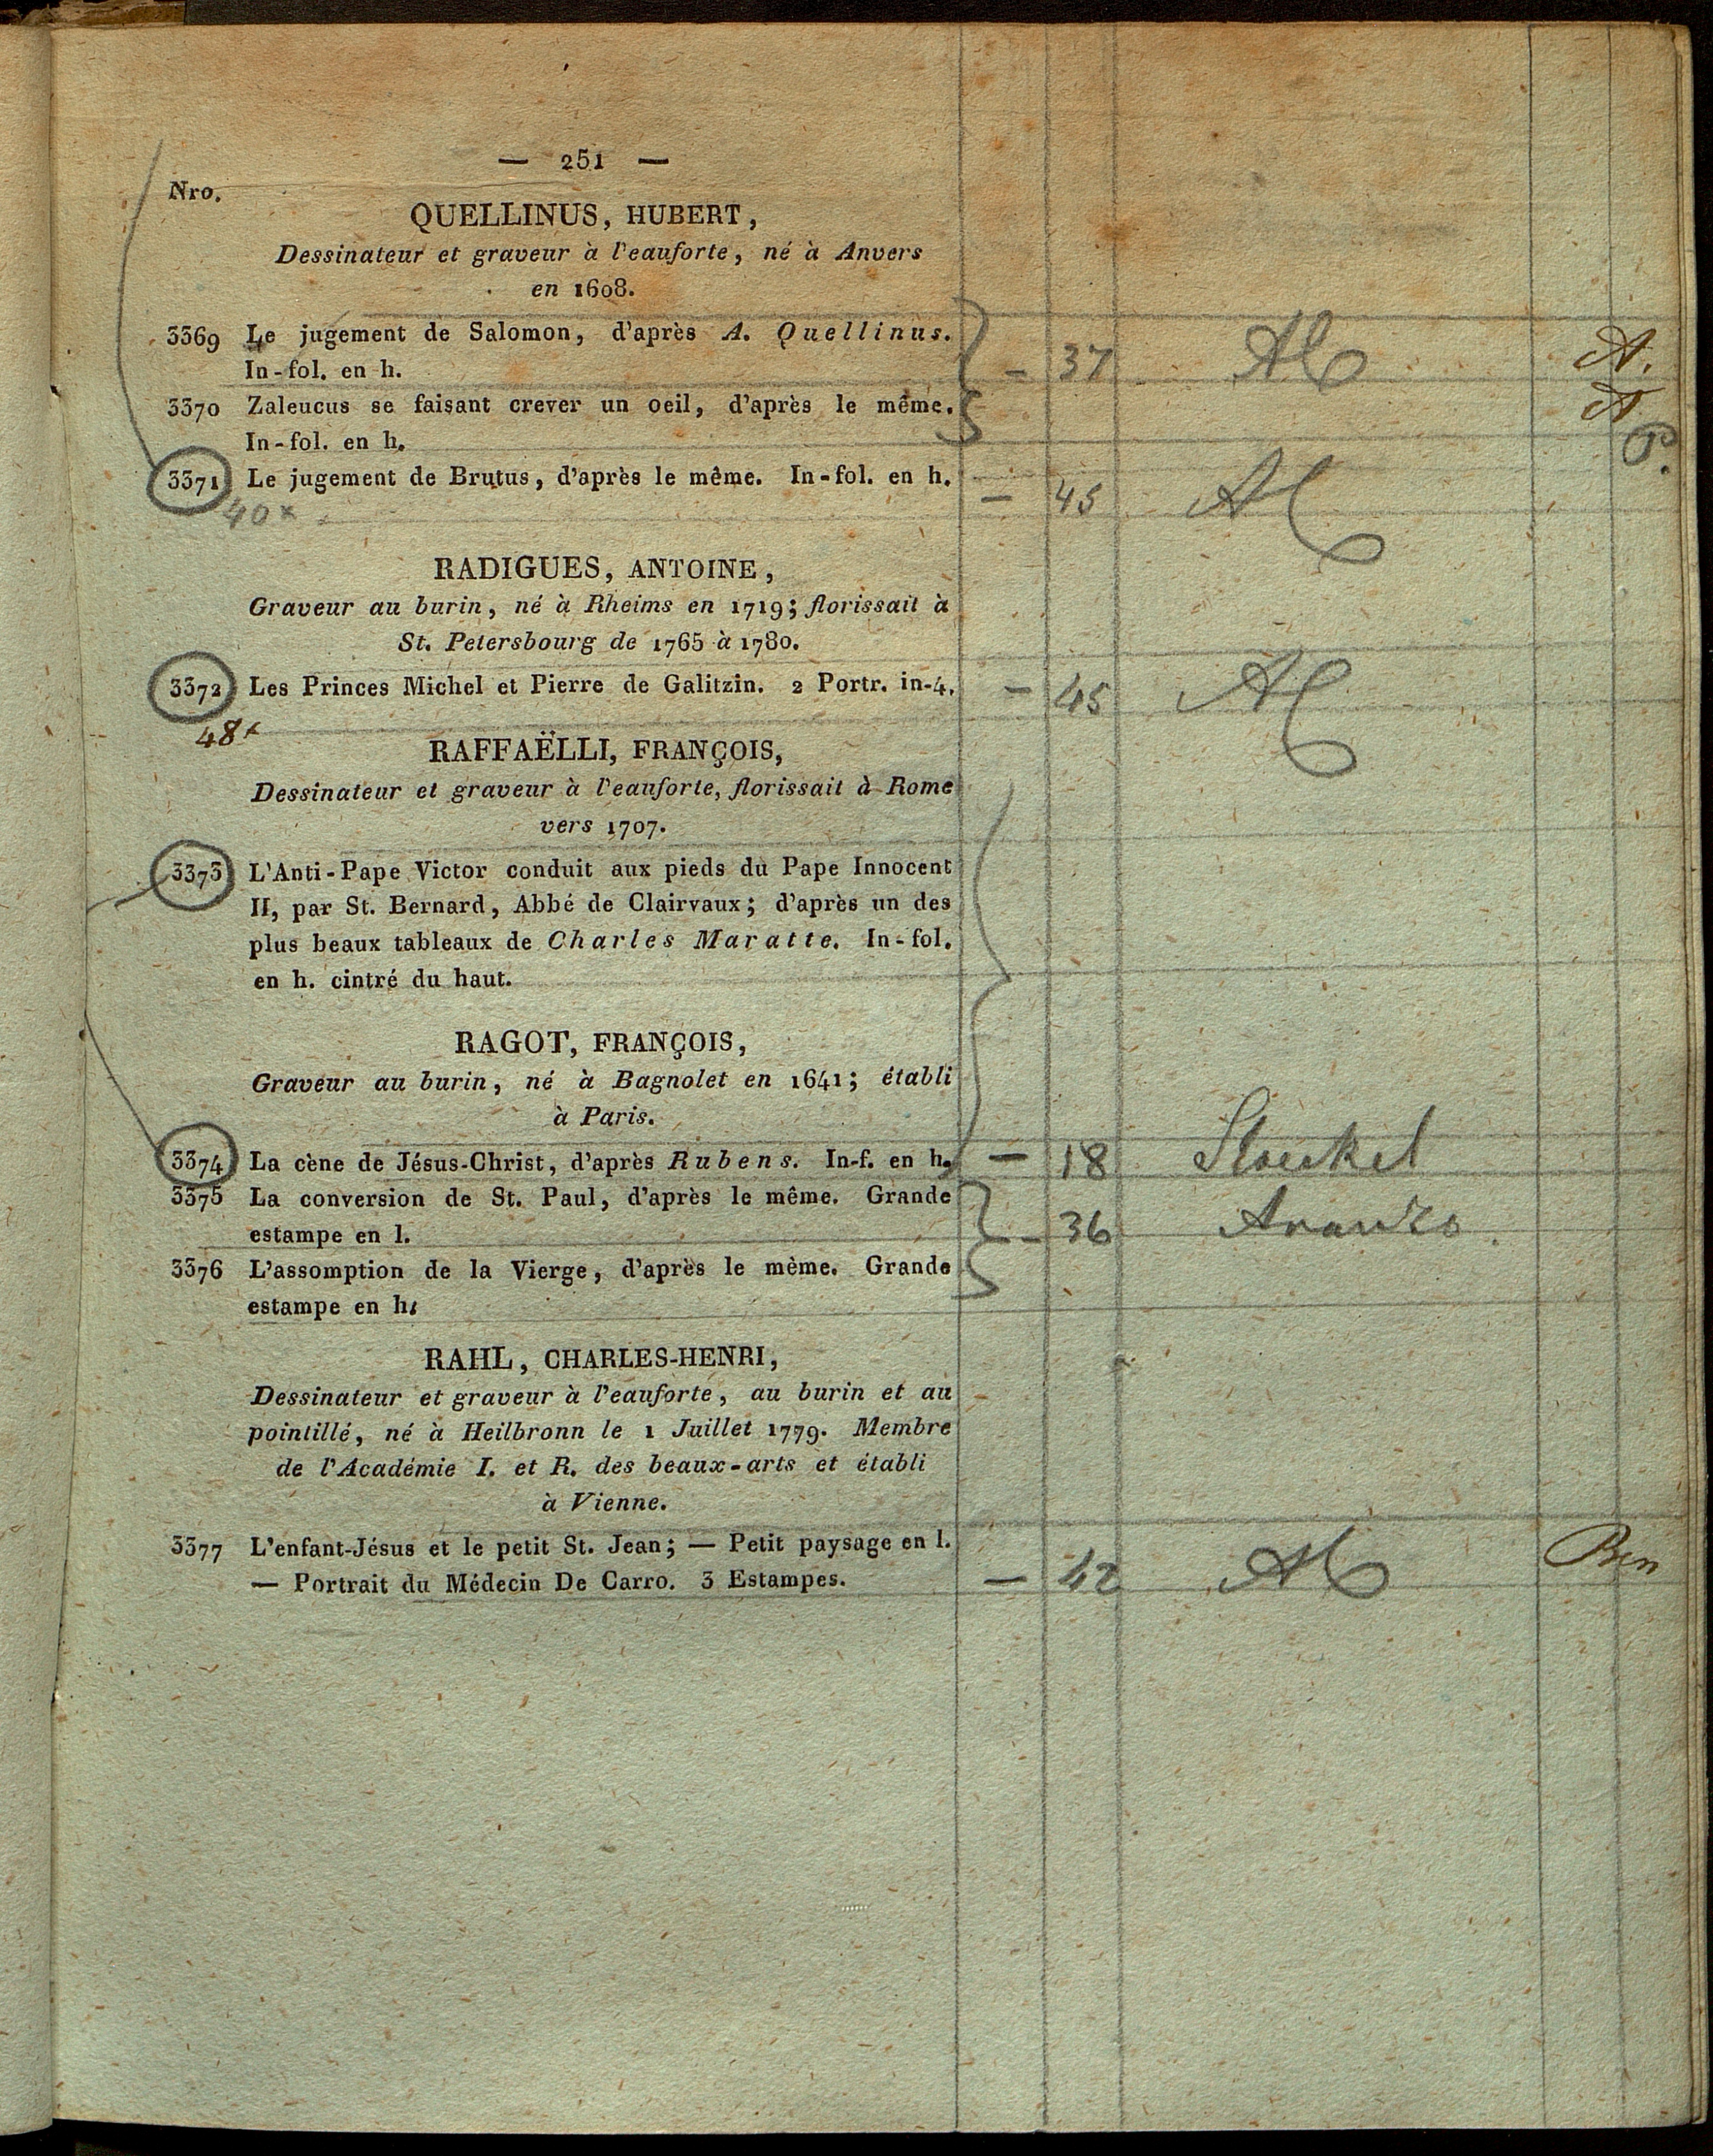 — 251 —
Nro.
QUELLINUS, HUBERT,
Dessinateur et graveur à l'eauforte, né à Anvers
en 1608.
3369 Le jugement de Salomon, d'après A. Quellinus.
In-fol. en h. — 37 A.
3370 Zaleucus se faisant crever un oeil, d'après le même.
In-fol. en h. P.
3371 Le jugement de Brutus, d'après le même. In-fol. en h. — 45
40 x
RADIGUES, ANTOINE,
Graveur au burin, né à Rheims en 1719; florissait à
St. Petersbourg de 1765 à 1780.
3372 Les Princes Michel et Pierre de Galitzin. 2 Portr. in-4. — 45
48 x
RAFFAËLLI, FRANÇOIS,
Dessinateur et graveur à l'eauforte, florissait à Rome
vers 1707.
3373 L'Anti-Pape Victor conduit aux pieds du Pape Innocent
II, par St. Bernard, Abbé de Clairvaux; d'après un des
plus beaux tableaux de Charles Maratte. In-fol.
en h. cintré du haut.
RAGOT, FRANÇOIS,
Graveur au burin, né à Bagnolet en 1641; établi
à Paris.
3374 La cène de Jésus-Christ, d'après Rubens. In-f. en h. — 18 Stoeckel
3375 La conversion de St. Paul, d'après le même. Grande
estampe en l. — 36
3376 L'assomption de la Vierge, d'après le mème. Grande
estampe en h.
RAHL, CHARLES-HENRI,
Dessinateur et graveur à l'eauforte, au burin et au
pointillé, né à Heilbronn le 1 Juillet 1779. Membre
de l'Académie I. et R. des beaux-arts et établi
à Vienne.
3377 L'enfant-Jésus et le petit St. Jean; — Petit paysage en l.
— Portrait du Médecin De Carro. 3 Estampes. — 42 Ben